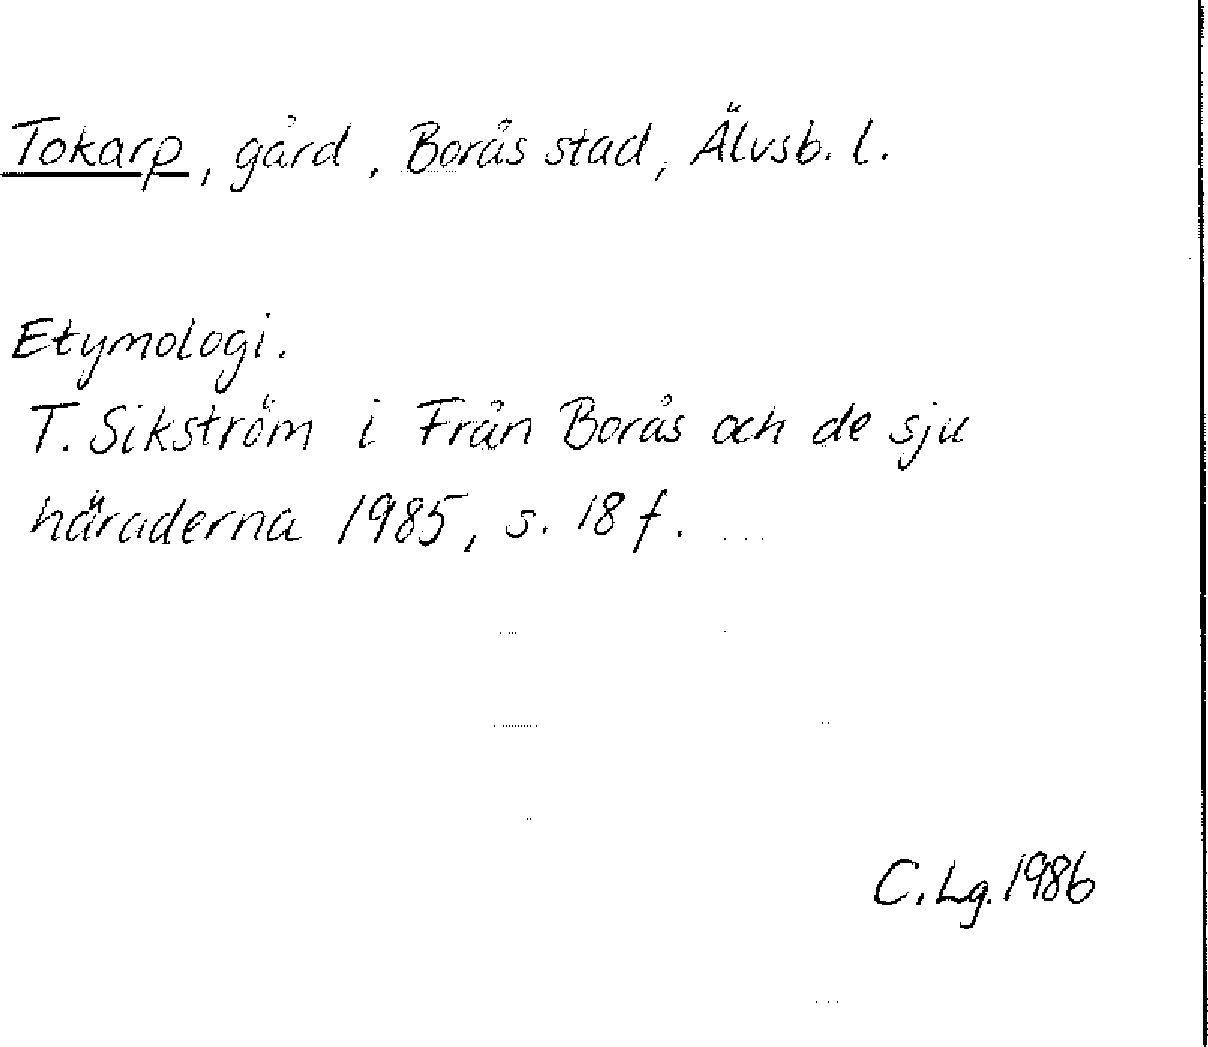 Tokarp, gård, Borås stad, Älvsb. l.
Etymologi.
T. Sikström i Från Borås och de sju
häraderna 1985, s. 18 f.
C. Lg. 1986